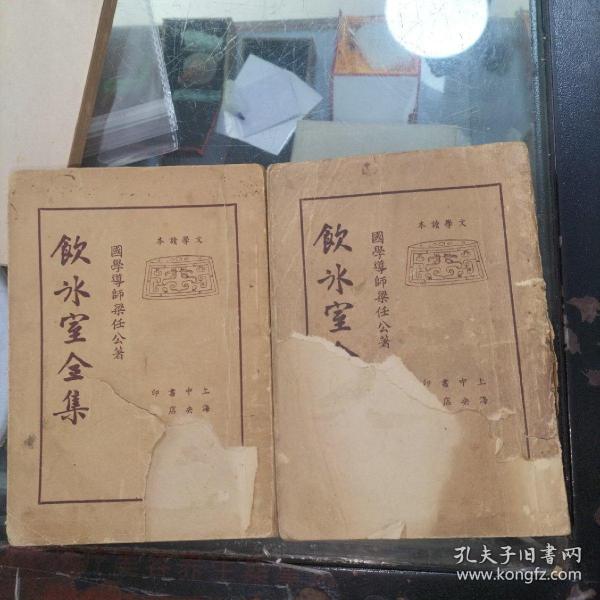 文學讀本
國學導師梁任公著
飲冰室全集
上海
中央
書店
印
文學讀本
國學導師梁任公著
飲冰室全
上海
中央
書店
印
孔夫子旧書网
www.kongfz.com